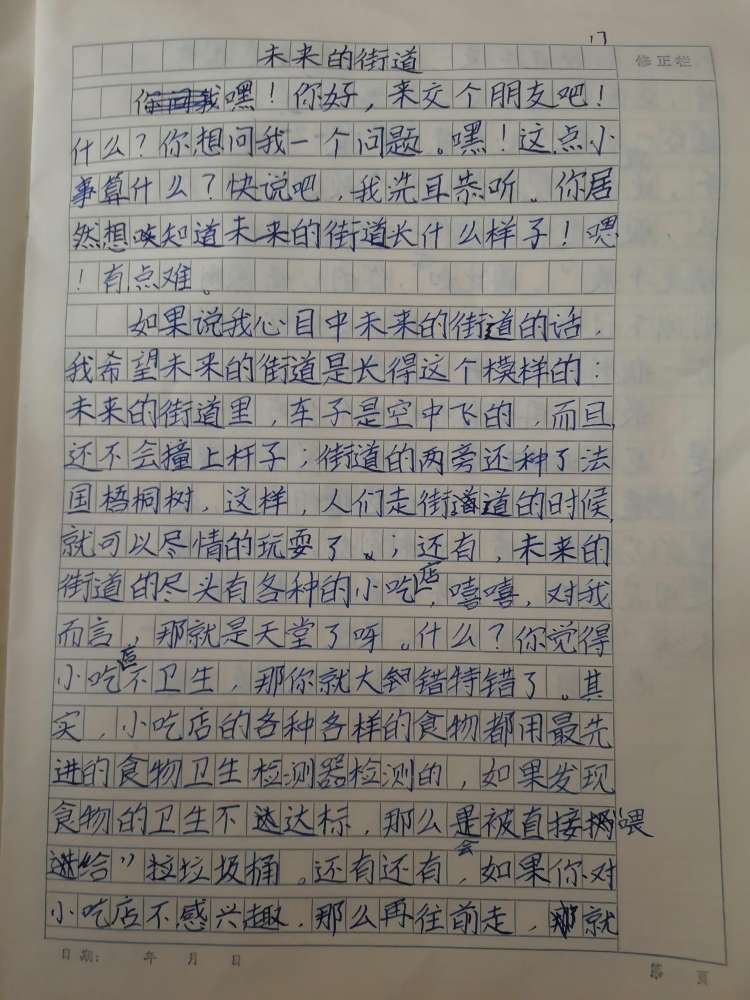 17
未来的街道
修正栏
嘿！你好，来交个朋友吧！
什么？你想问我一个问题。嘿！这点小
事算什么？快说吧，我洗耳恭听。你居
然想知道未来的街道长什么样子！嗯
！有点难。
如果说我心目中未来的街道的话，
我希望未来的街道是长得这个模样的：
未来的街道里，车子是空中飞的，而且
还不会撞上杆子；街道的两旁还种了法
国梧桐树，这样，人们走街道的时候，
就可以尽情的玩耍了。；还有，未来的
街道的尽头有各种的小吃店，嘻嘻，对我
而言，那就是天堂了呀。什么？你觉得
小吃店不卫生，那你就大错特错了。其
实，小吃店的各种各样的食物都用最先
进的食物卫生检测器检测的，如果发现
食物的卫生不达标，那么会被直接喂
给”垃圾桶。还有还有，如果你对
小吃店不感兴趣，那么再往前走，就
日期： 年 月 日
第 页